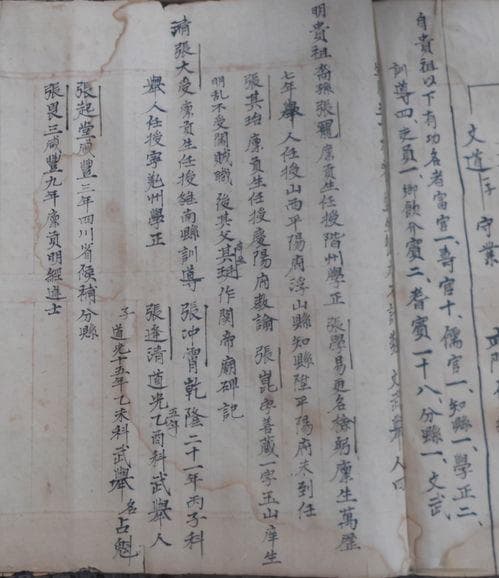 文道子守業
自貴祖以下有功名者富官一、壽官十、儒官一、知縣一、學正二、
訓導四、吏員一、鄉飲介賓二、耆賓一十八、分縣一、文武
舉人四
明貴祖裔孫張寵廩貢生任授階州學正 張學易更名檢躬廩生萬歷
七年舉人任授山西平陽府浮山縣知縣陞平陽府未到任
張其班廩貢生任授慶陽府教諭 張崑字善藏一字玉山庠生
明乱不受闖賊職 後其父其班作関帝廟碑記
清張大受廩貢生任授雒南縣訓導 張沖霄乾隆二十一年丙子科
舉人任授寧羌州學正 張逢清道光五年乙酉科武舉人
子道光十五年乙未科武舉名占魁
張起堂咸豐三年四川省候補分縣
張畏三咸豐九年廩貢明經進士